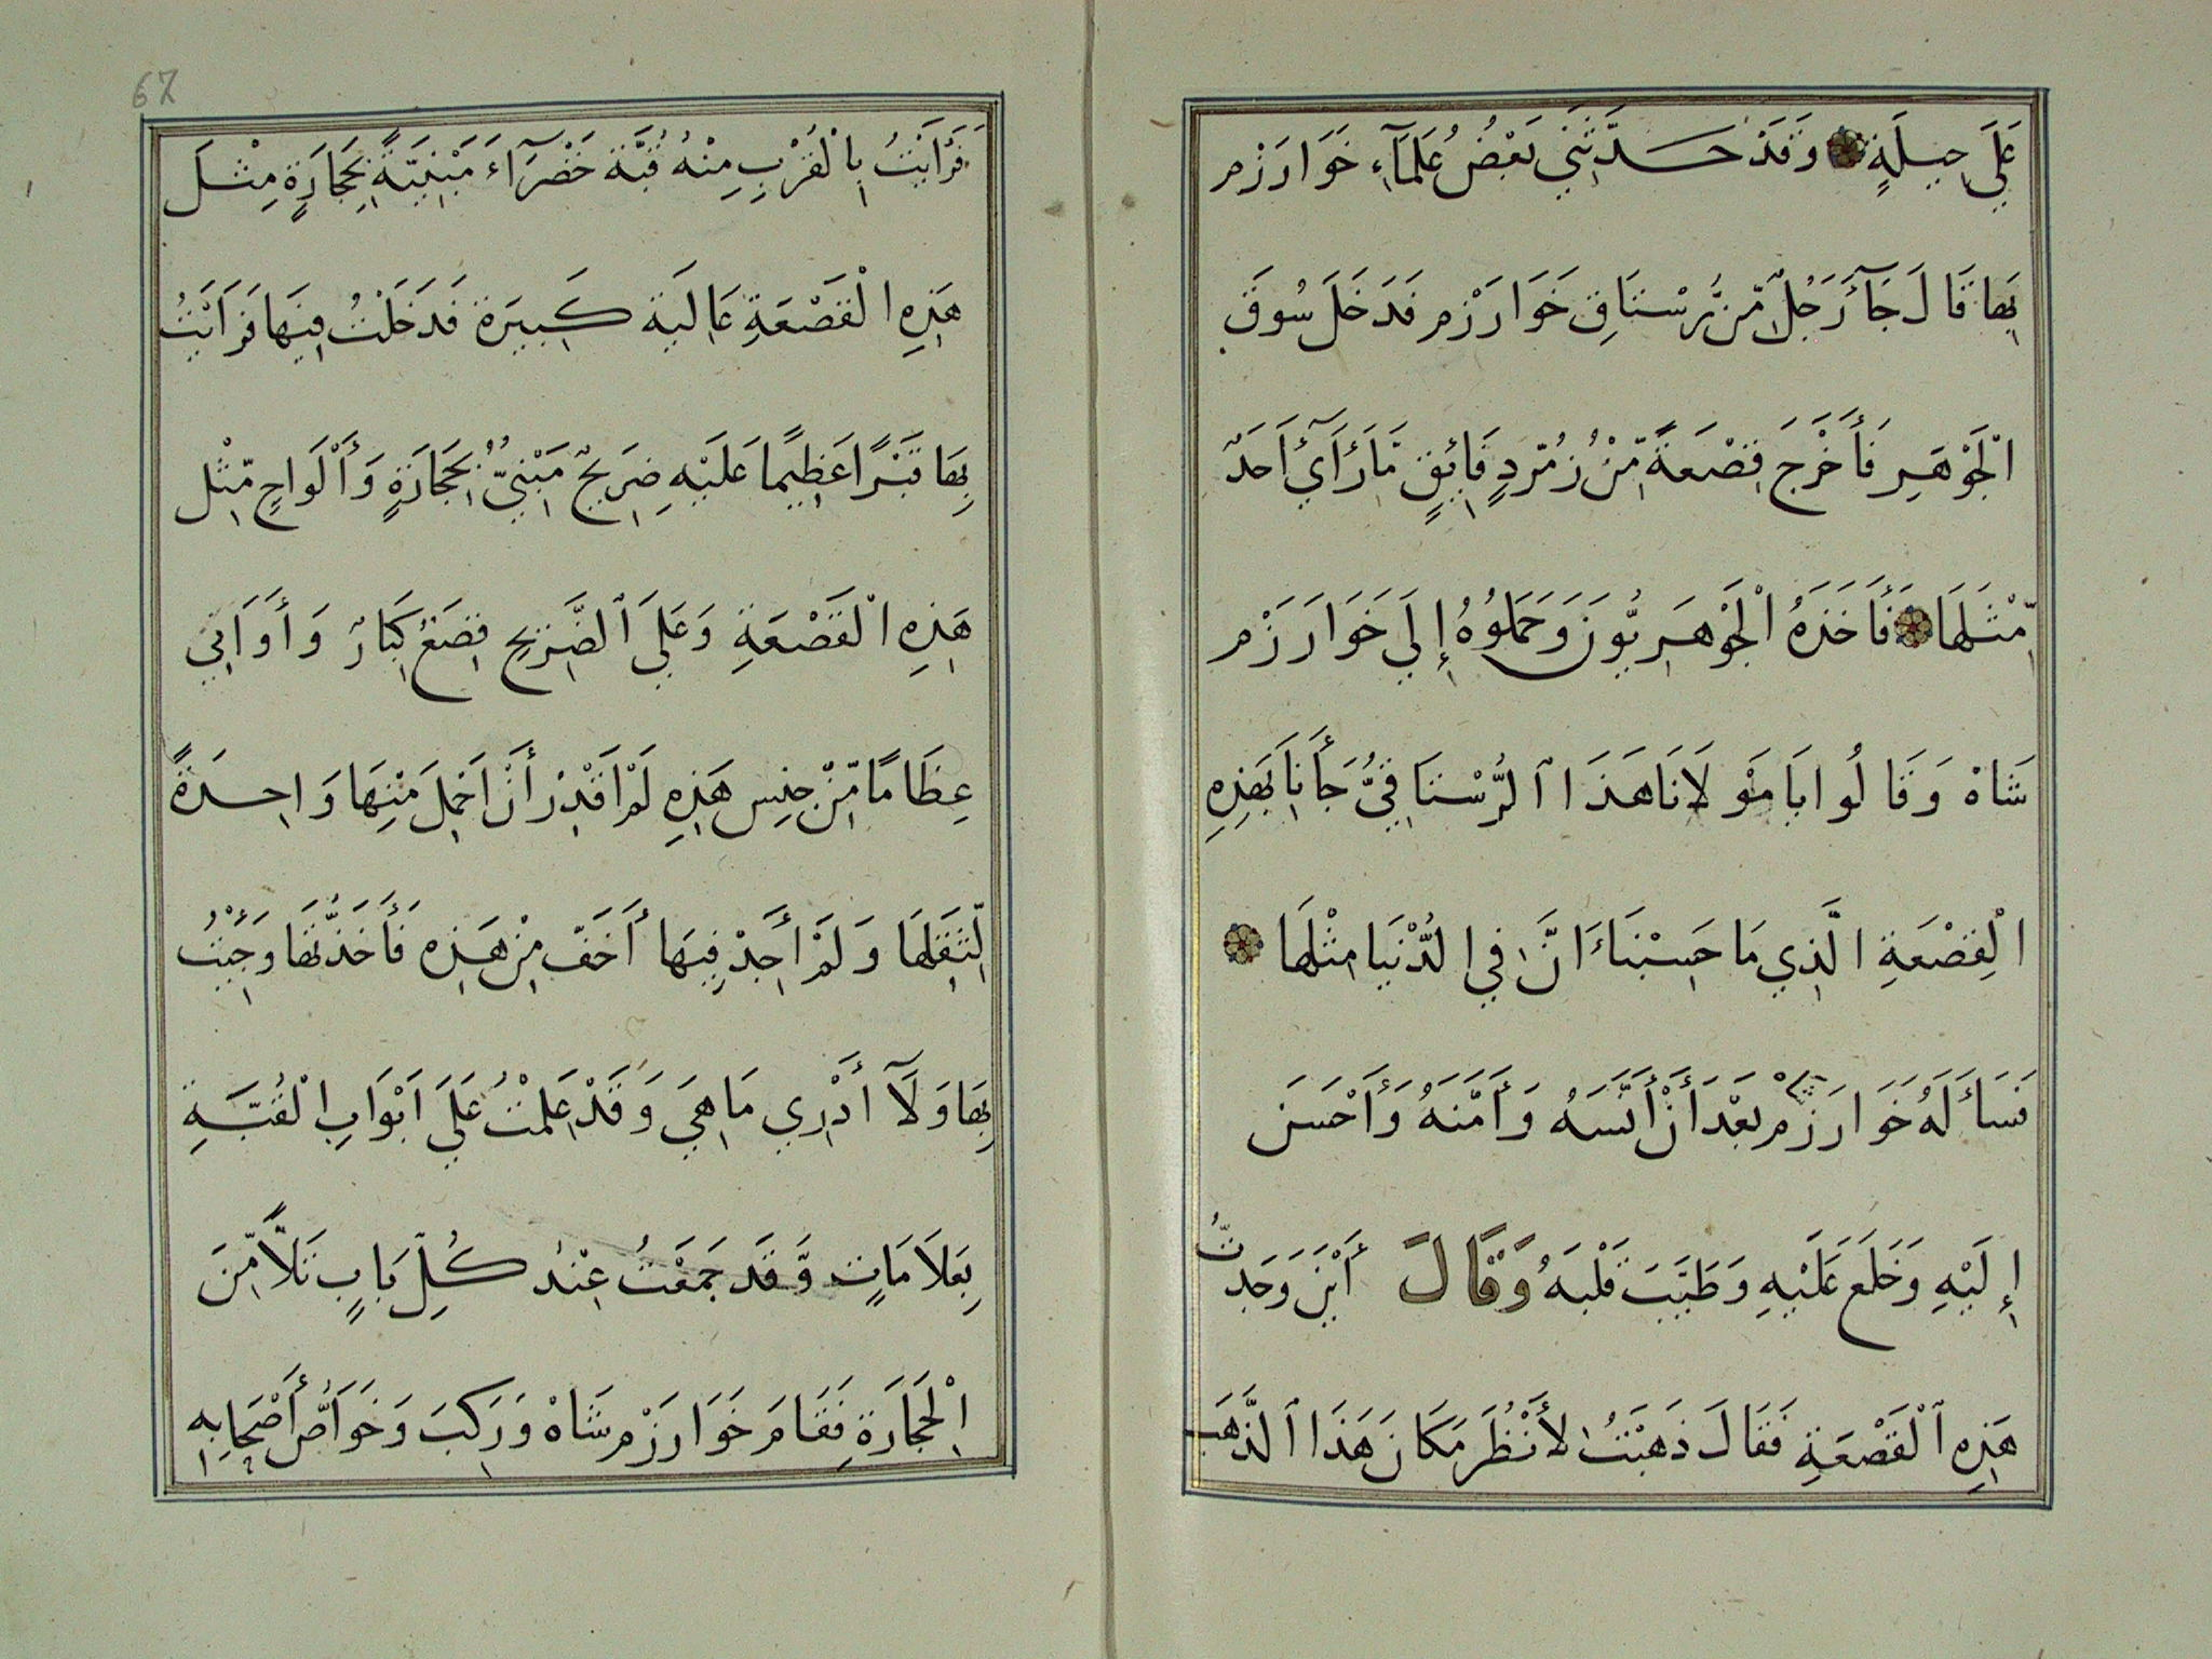 عَلَى حِيلَةٍ وَقَدْ حَدَّثَنِي بَعْضُ عُلَمَآءِ خَوَارَزْم
بِهَا قَالَ جَآءَ رَجُلٌ مِّن رُّسْتَاقِ خَوَارَزْم فَدَخَلَ سُوقَ
الْجَوْهَرِ فَأَخْرَجَ قِصْعَةً مِّنْ زُمُرّدٍ فَائِقٍ مَّا رَأَىٓ اَحَدٌ
مِّثْلَهَا فَأَخَذَهُ الْجَوْهَرِيُّونَ وَحَمَلُوهُ إِلَي خَوَارَزْم
شَاهْ وَقَالُوا يَا مَوْلَانَا هَذَا ٱلرُّسْتَاقِيُّ جَأَنَا بَهَذِهِ
الْقِصْعَةِ الَّذِي مَا حَسِبْنَاءَ انَّ فِي الدُّنْيَا مِثْلَهَا
فَسَأَلَهُ خَوَارَزْم شاه بَعْدَ أَنْ أَنَّسَهُ وَأَمَّنَهُ وَأَحْسَنَ
إِلَيْهِ وَخَلَعَ عَلَيْهِ وَطَيَّبَ قَلْبَهُ وَقَالَ أَيْنَ وَجَدتَّ
هَذِهِ ٱلْقَصْعَةِ فَقَالَ ذَهَبْتُ لأَنْظُرَ مَكَانَ هَذَا ٱلذَّهَب
67
فَرَاَيْتُ بِالْقُرْبِ مِنْهُ قُبَّة خَضْرَآءَ مَبْنِيَّةً بِحِجَارَةٍ مِثْلَ
هَذِهِ الْقَصْعَةِ عَالِيَة كَبِيرَة فَدَخَلْتُ فِيهَا فَرَاَيْتُ
بِهَا قَبْرًا عَظِيمًا عَلَيْهِ ضِرَيحٌ مَبْنِيٌّ بِحِجَارَةٍ وَأَلْوَاحٍ مّثْل
هَذِهِ الْقَصْعَةِ وَعَلَي ٱلضَّرِيحِ قِصَعٌ كِبَارٌ وَأَوَانِي
عِظَامًا مِّنْ جِنِس هَذِهِ لَمْ اَقْدِرْ أَنْ اَحْمِلَ مِنْهَا وَاحِدَةً
لِّثِقَلِهَا وَلَمْ أَجِدْ فِيهَا أَخَفّ مِنْ هَذِه فَأَخَذتُّهَا وَجِئْتُ
بِهَا وَلَآ أَدْرِي مَا هِيَ وَقَدْ عَلَمْتُ عَلَي اَبْوَابِ الْقُبَّةِ
بِعَلَامَاتٍ وَّقَد جَمَعْتُ عِنْد كُلِّ بَابٍ تَلًّا مِّنَ
الْحِجَارَةِ فَقَامَ خَوَارَزْم شَاهْ وَرَكِبَ وَخَوَاصُّ أَصْحَابِهِ